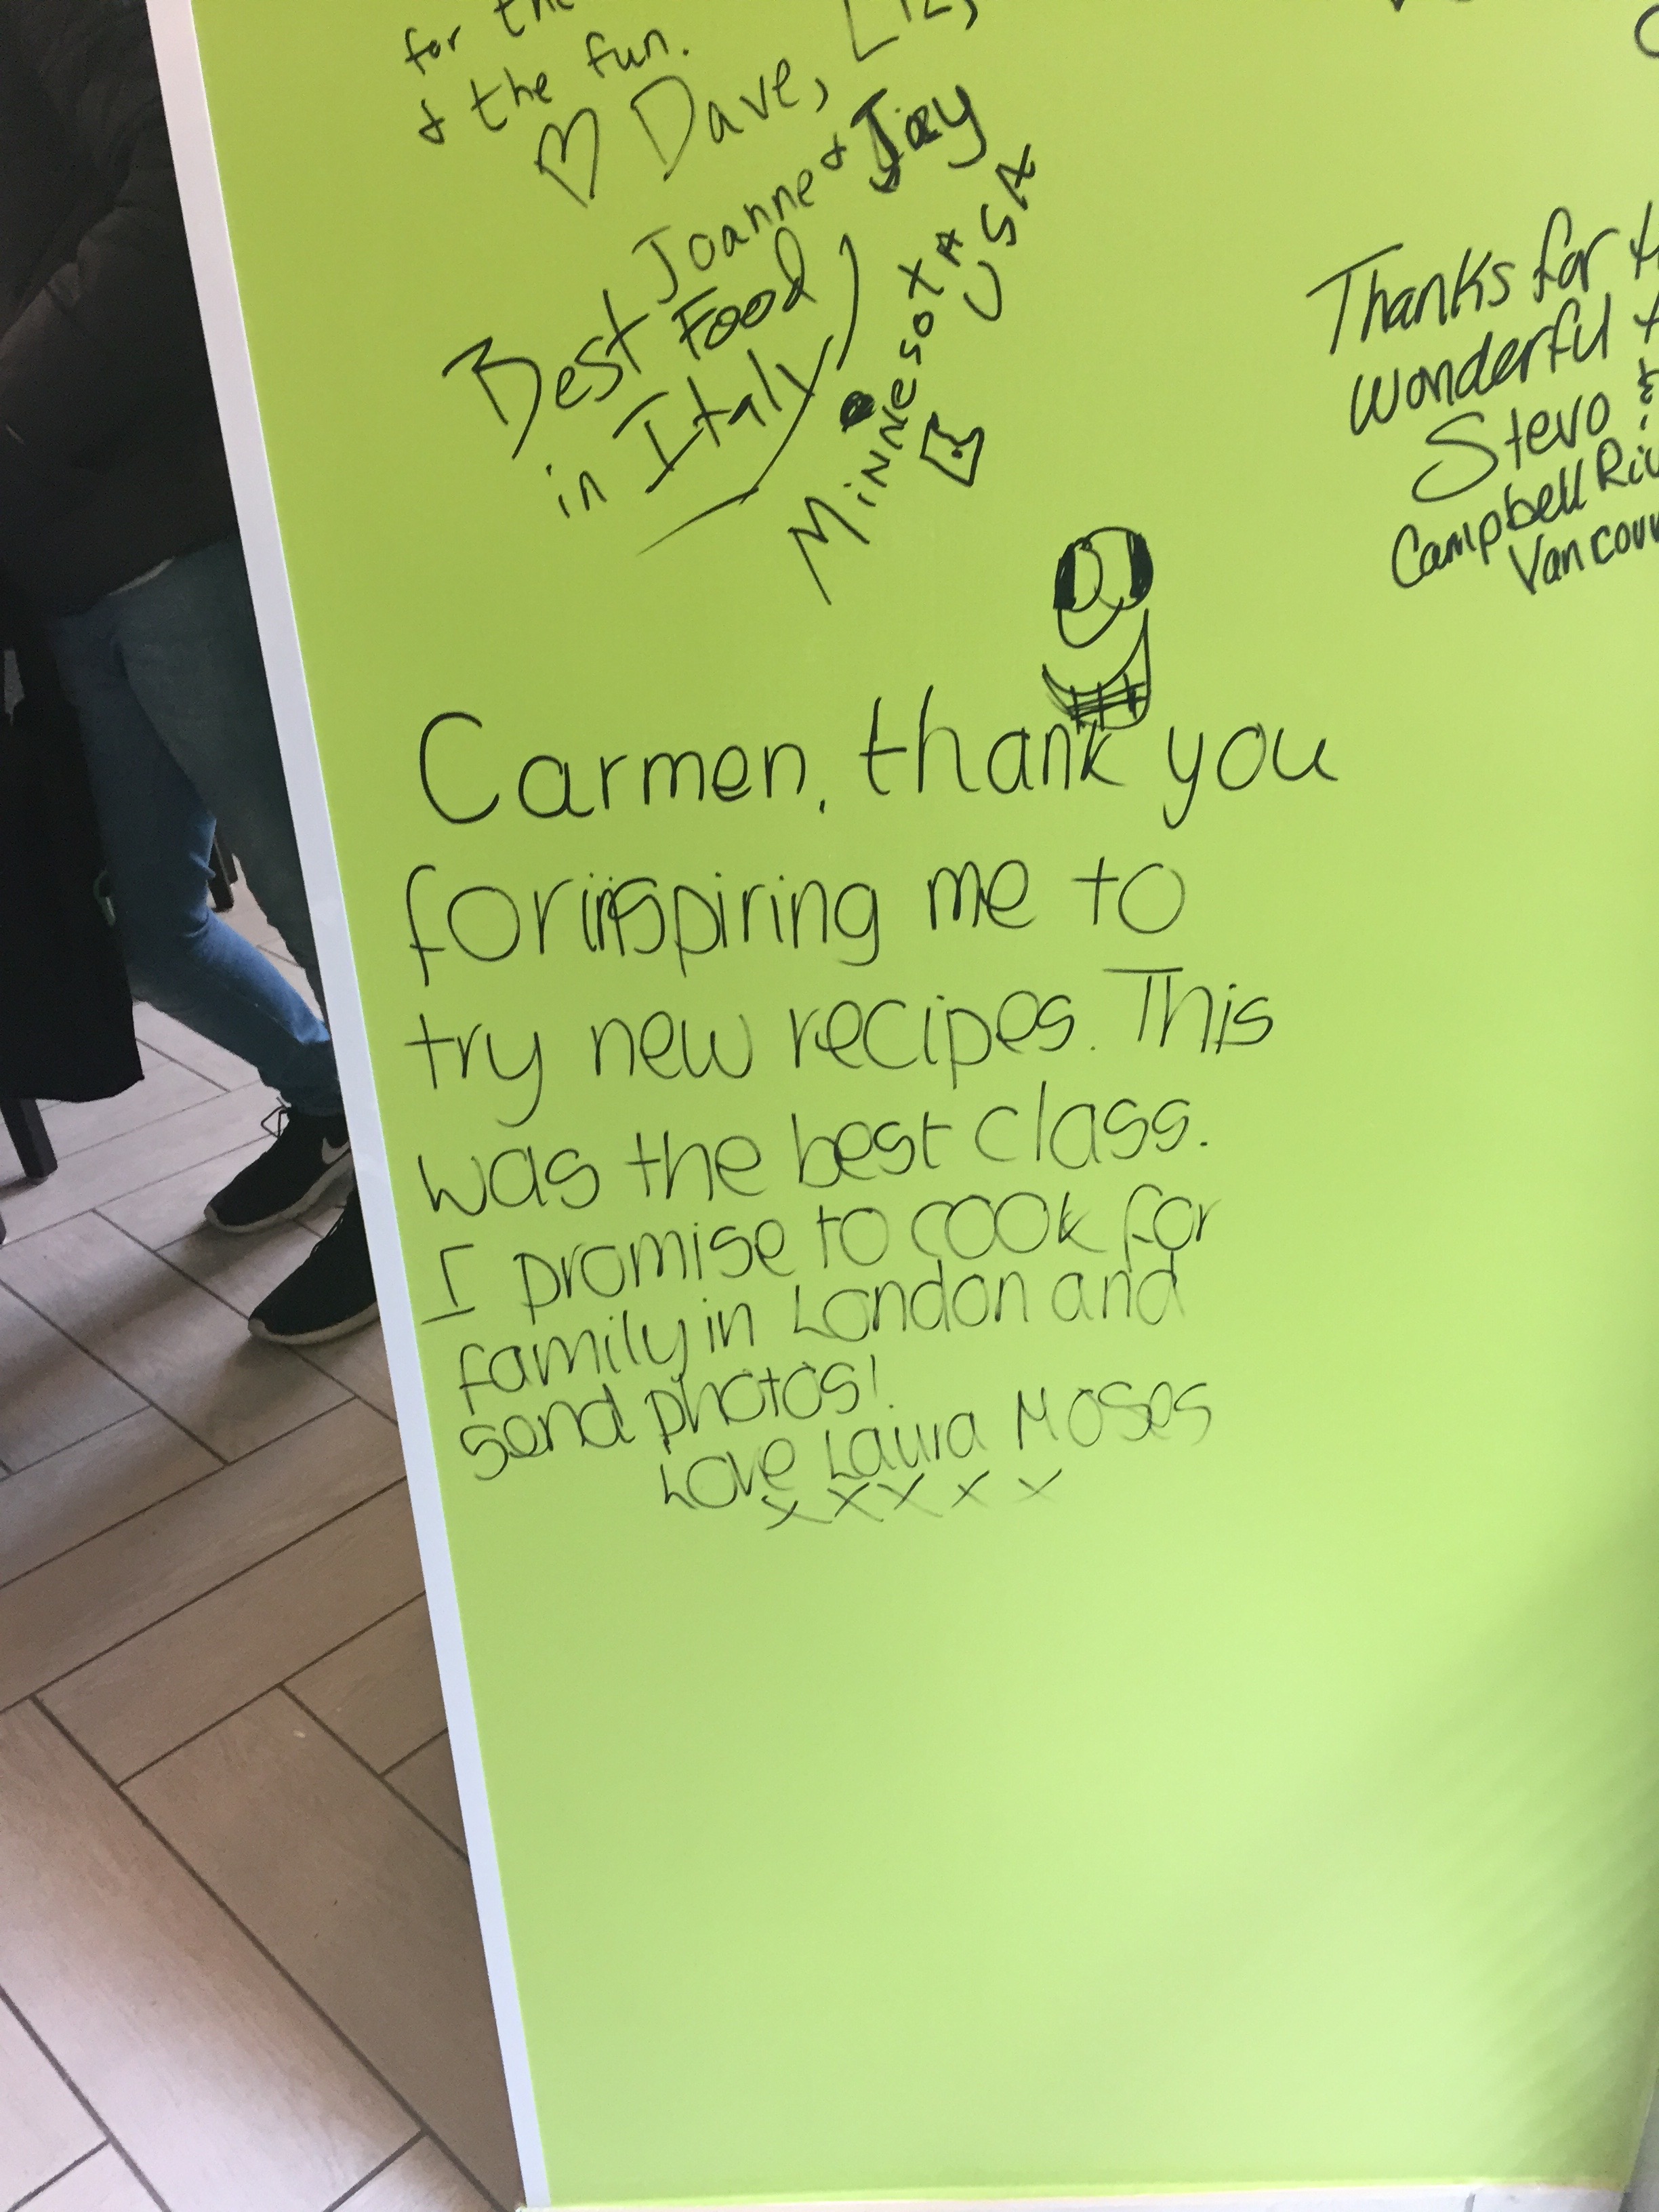 for the
& the fun.
Dave, Liz,
Joanne & Jay
Best Food
in Italy
Minnesota
USA
Thanks for
wonderful
Stevo &
Campbell
Carmen, thank you
for inspiring me to
try new recipes. This
was the best class.
I promise to cook for
family in London and
send photos!
Love Laura Moses
x x x x x